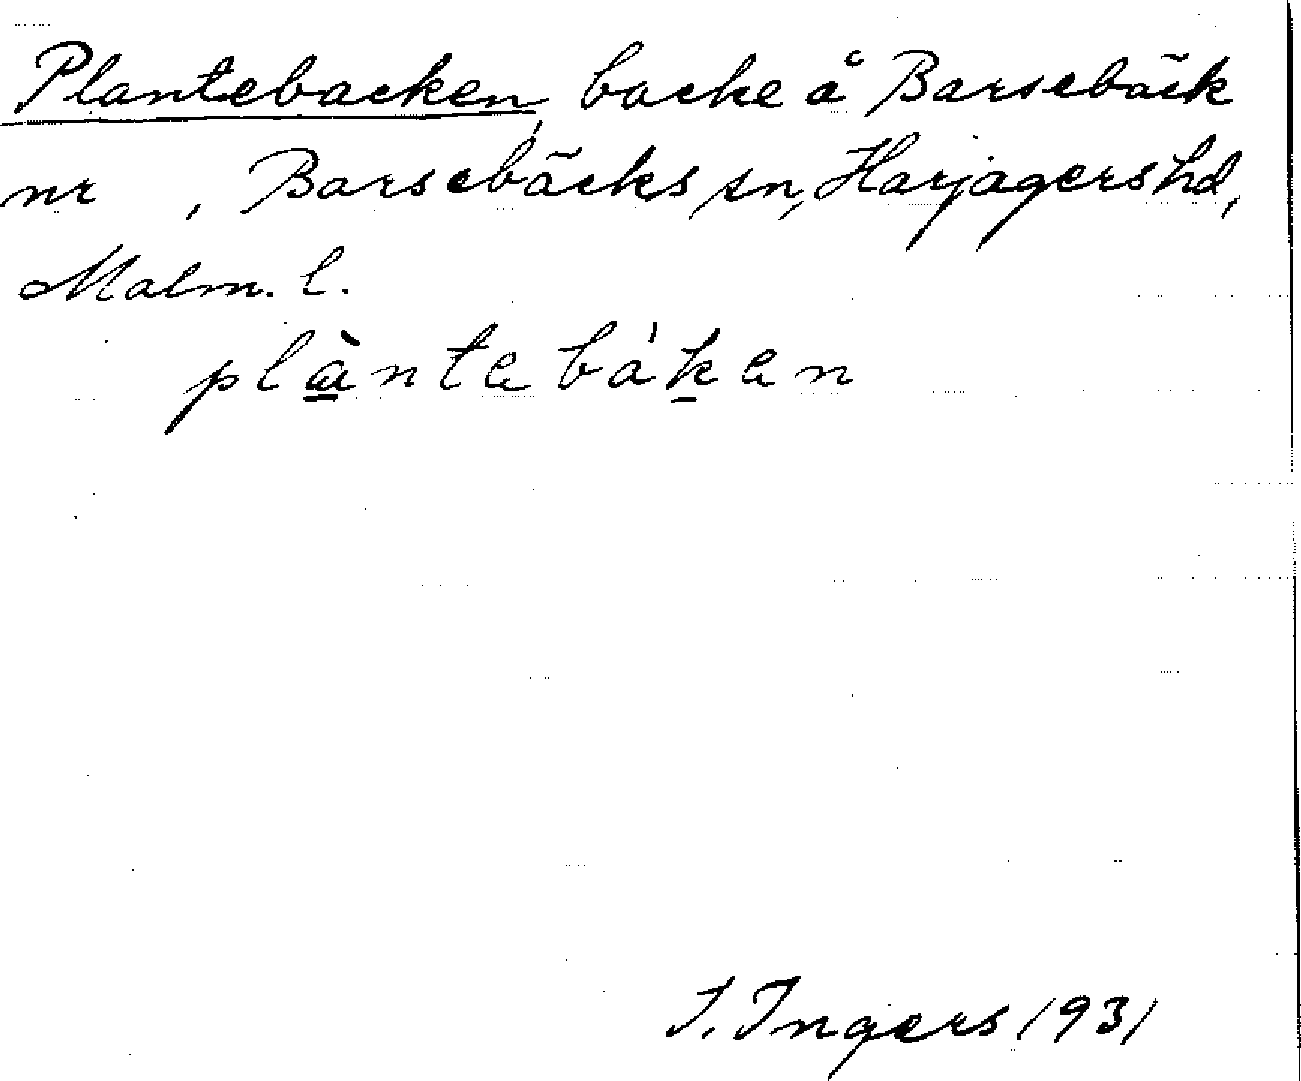 Plantebacken, backe å Barsebäck
nr , Barsebäcks sn, Harjagers hd,
Malm. l.
plàntebáken
I. Ingers 1931